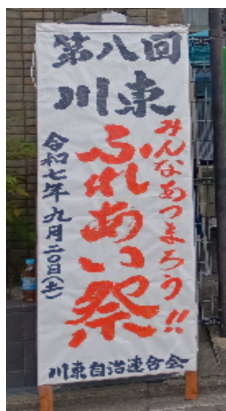 第八回
川東
みんなあつまろう!!
ふれあい祭
令和七年九月二〇日(土)
川東自治連合会